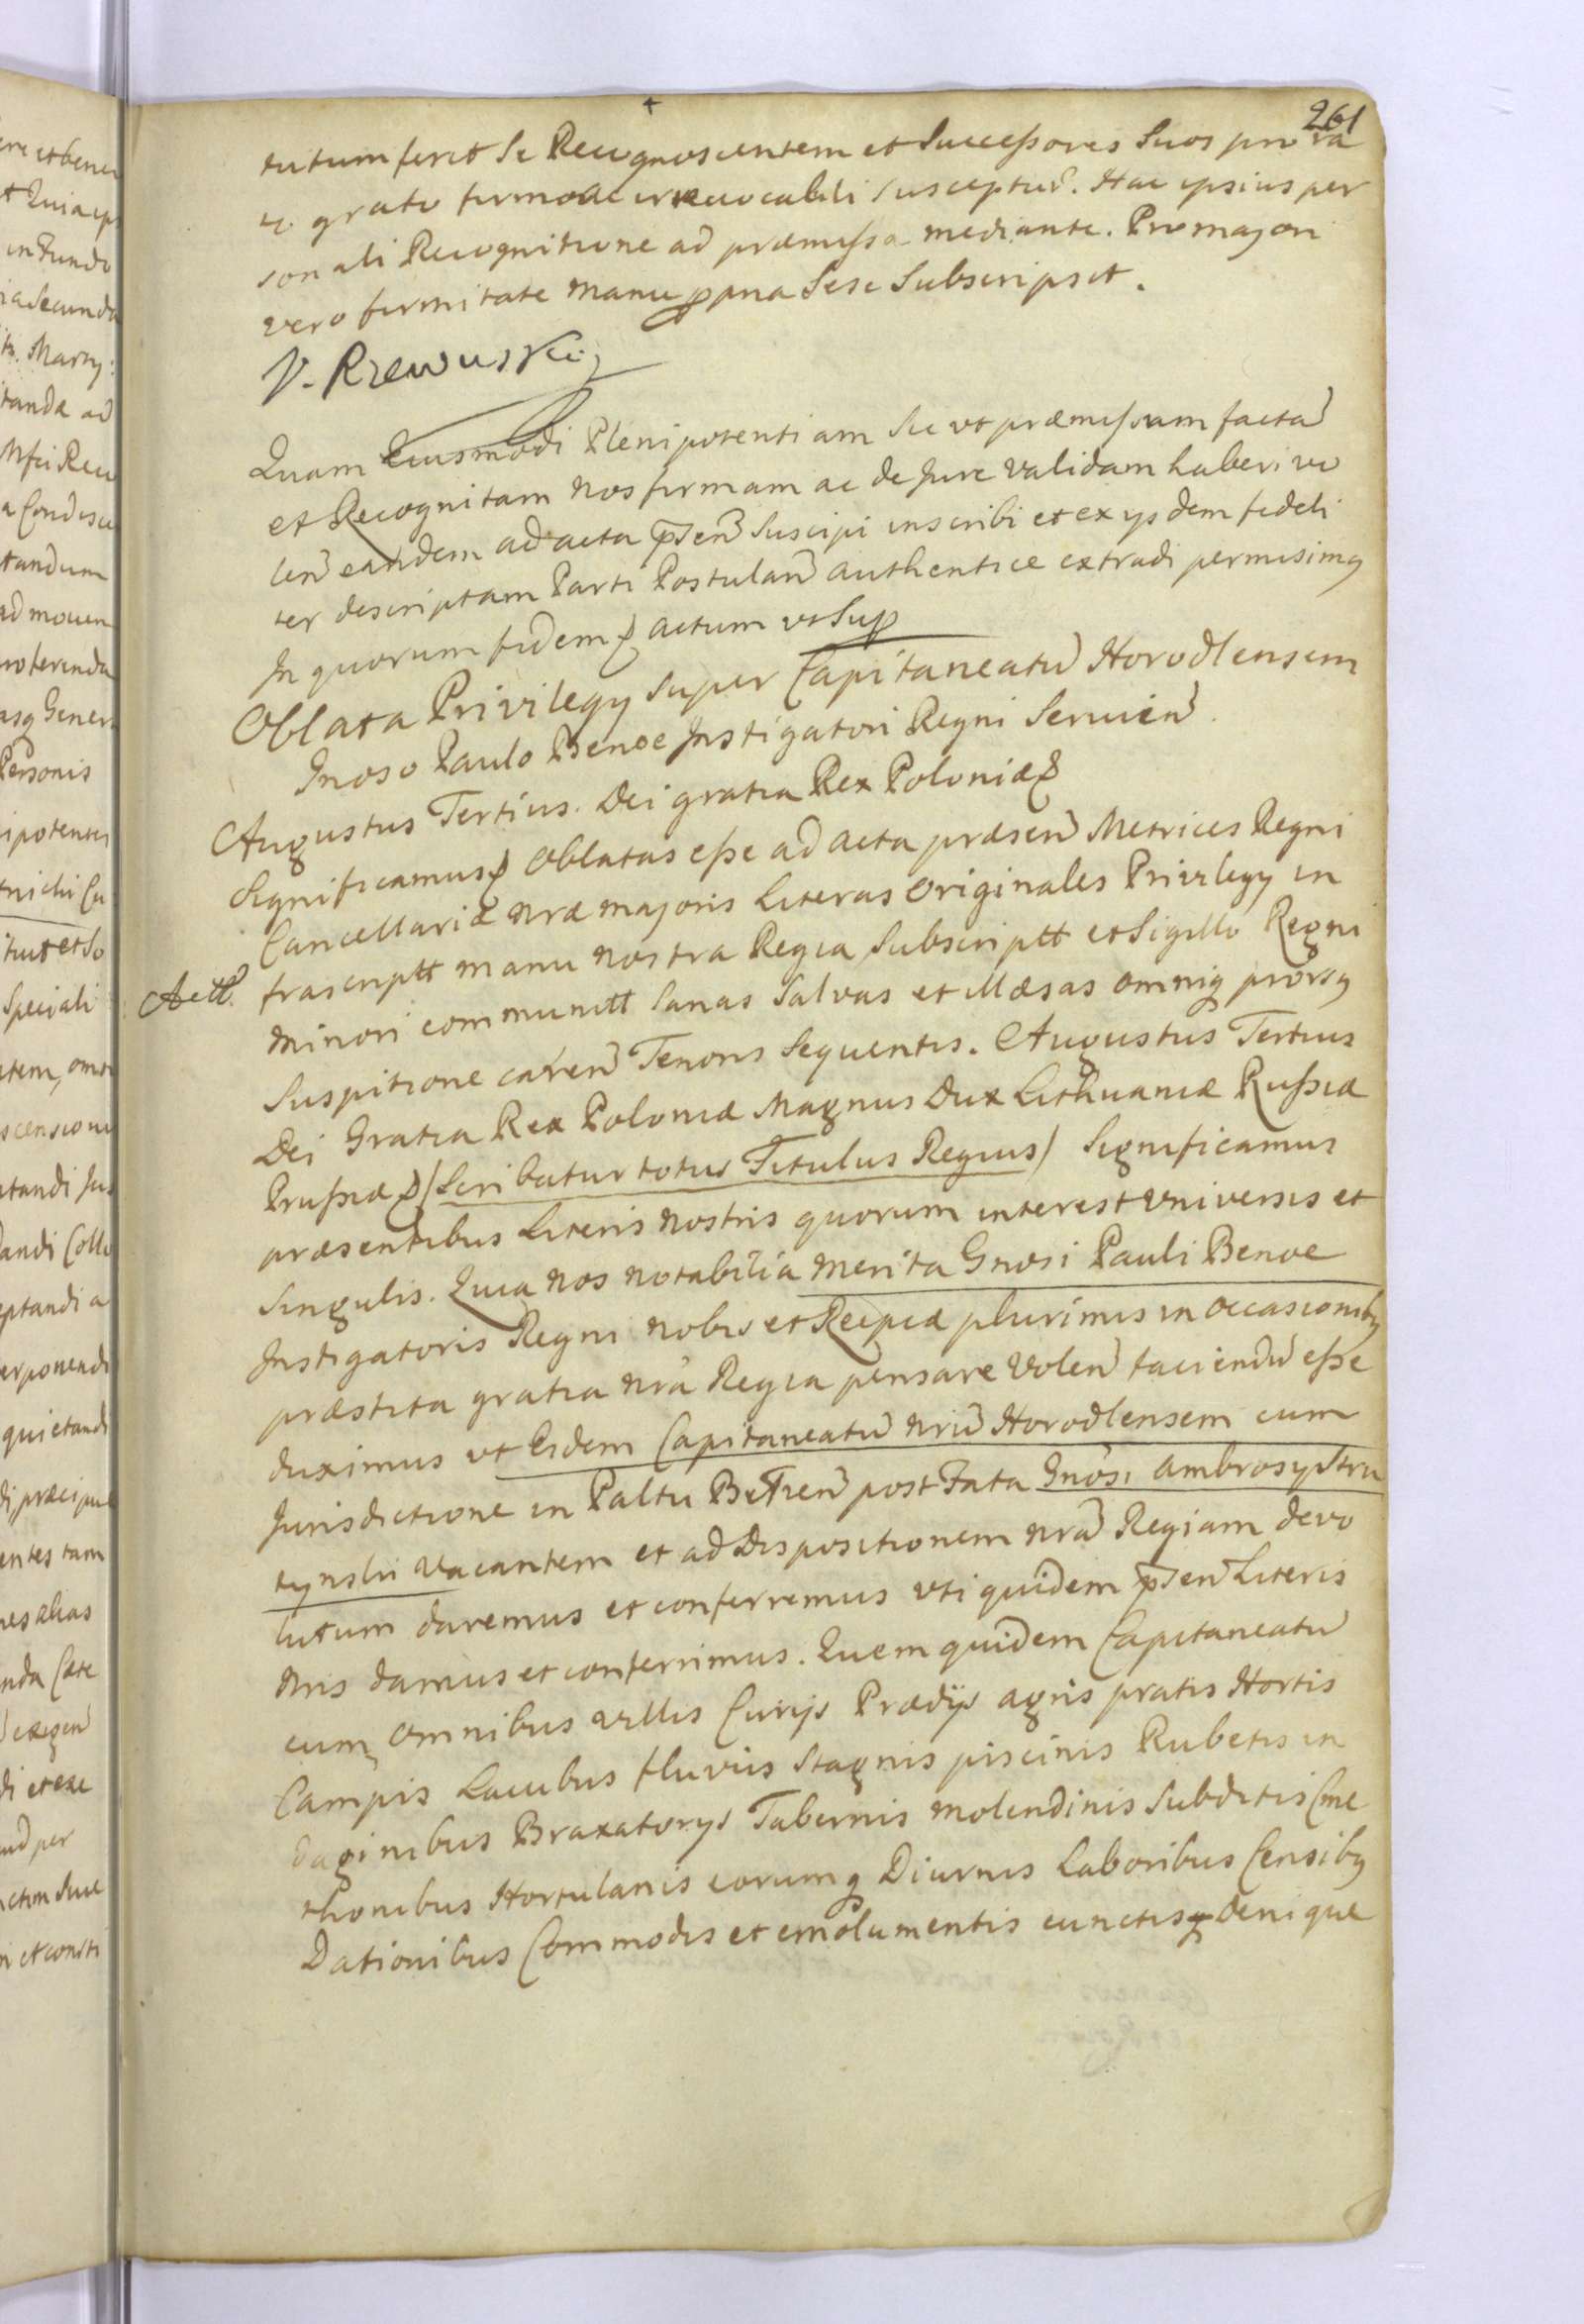 261
tutum fuerit se Recognoscentem et Successores Suos pro ra
to grato firmo ac irrevocabili suscepturũ. Hac ipsius per
sonali Recognitione ad præmissa mediante. Pro majori
vero firmitate manu ppria sese Subscripsit.
V. Rzewuski
Quam Eiusmodi Plenipotentiam Sic vt præmissum factã
et Recognitam nos firmam ac de Jure validam haberi vo
len̄ eandem ad acta p̄sen̄ Suscipi inscribi et ex ijsdem fideli
ter descriptam Parti Postulan̄ authentice extradi permisimq
In quorum fidem & Actum vt Sup
Oblata Privilegij super Capitaneatũ Horodlensem
Gnoso Paulo Benoe Instigatori Regni Servien̄.
Augustus Tertius. Dei gratia Rex Poloniæ &
Significamus & Oblatas esse ad Acta præsen̄ Metrices Regni
Cancellariæ nræ majoris Literas Originales Privilegij in
Actt.
frascriptt manu nostra Regia Subscriptt et Sigillo Regni
Minori communitt Sanas Salvas et illæsas omniq prorsq
Suspitione caren̄ Tenoris Sequentis. Augustus Tertius
Dei Gratia Rex Poloniæ Magnus Dux Lithuaniæ Russiæ
Prussiæ & /Scribatur totus Titulus Regius/ Significamus
præsentibus Literis nostris quorum interest vniversis et
Singulis. Quia nos notabilia merita Gnosi Pauli Benoe
Instigatoris Regni nobis et Reipcæ plurimis in occasionibq
præstita gratia nrã Regia pensare Volen̄ faciendũ esse
duximus vt Eidem Capitaneatũ nrũ Horodlensem cum
Jurisdictione in Paltu Belzen̄ post Fata Gnosi Ambrosij Stru
tynski Vacantem et ad Dispositionem nrã Regiam devo
lutum daremus et conferremus vti quidem p̄sen̄ Literis
Nris damus et conferimus. Quem quidem Capitaneatũ
cum omnibus villis Curijs Prædijs agris pratis Hortis
Campis Lacubus fluviis Stagnis piscinis Rubetis in
daginibus Braxatorijs Tabernis molendinis Subditis Cme
thonibus Hortulanis eorumq Diurnis Laboribus Censibq
Dationibus Commodis et emolumentis cunctisq denique